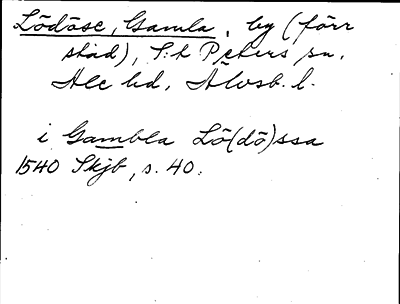 Lödöse, Gamla, by (förr
stad), S:t Peters sn,
Ale hd, Älvsb. l.
i Gambla Lö(dö)ssa
1540 Skjb, s. 40.